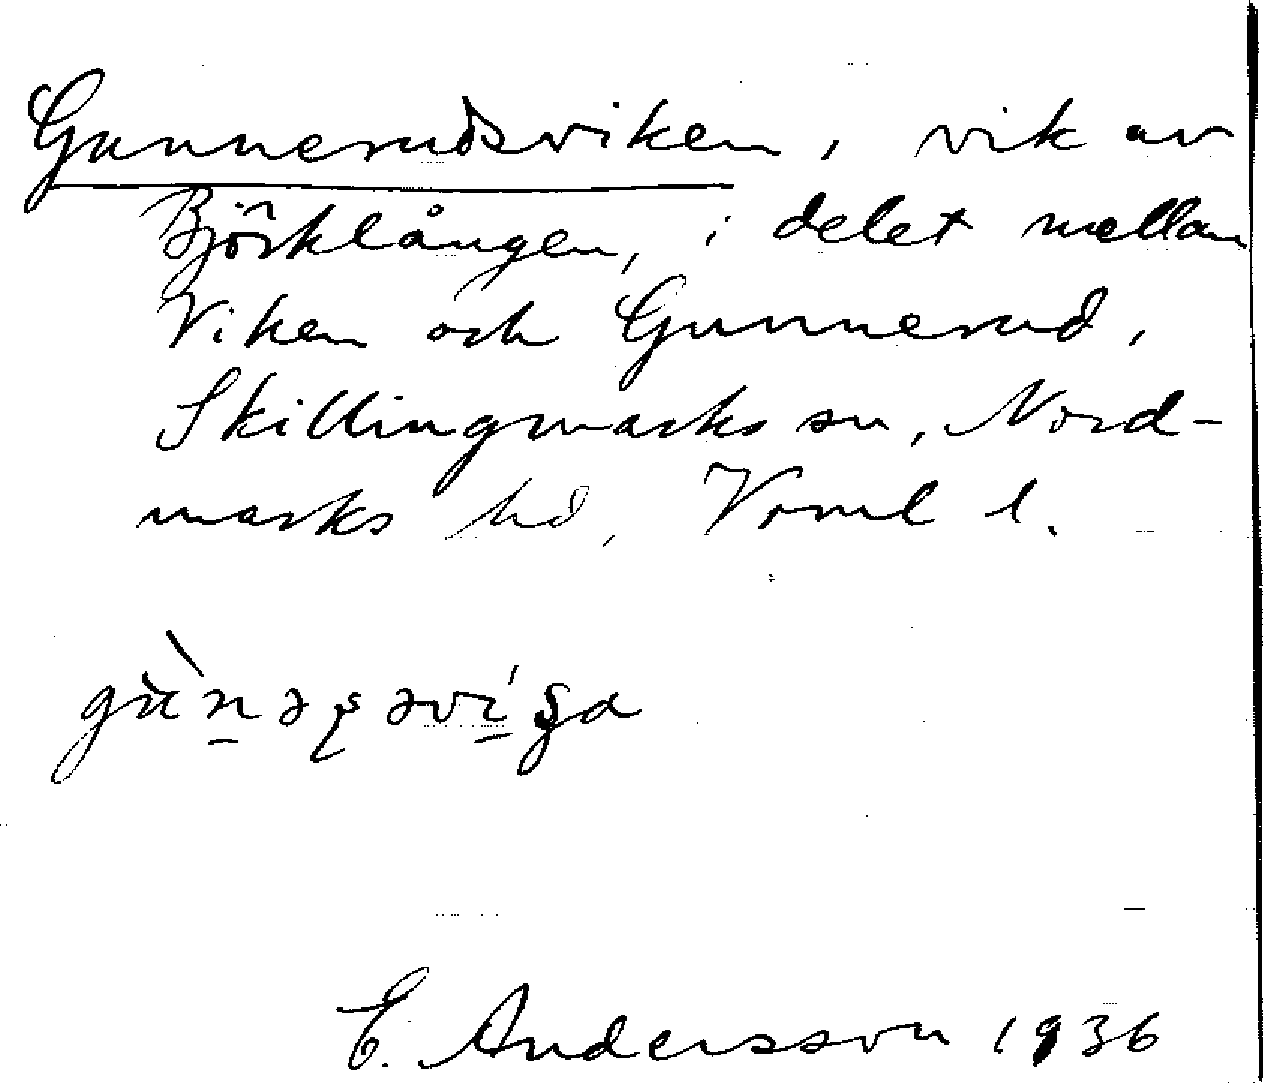 Gunnerudsviken, vik av
Björklången, i delet mellan
Viken och Gunnerud,
Skillingmarks sn, Nord-
marks hd, Vrml l.
E. Andersson 1936